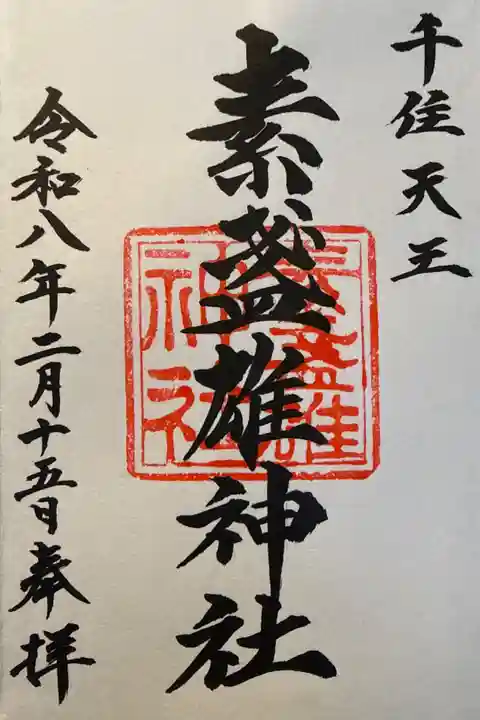 千住天王
素盞雄神社
素盞雄
神社
令和八年二月十五日奉拝